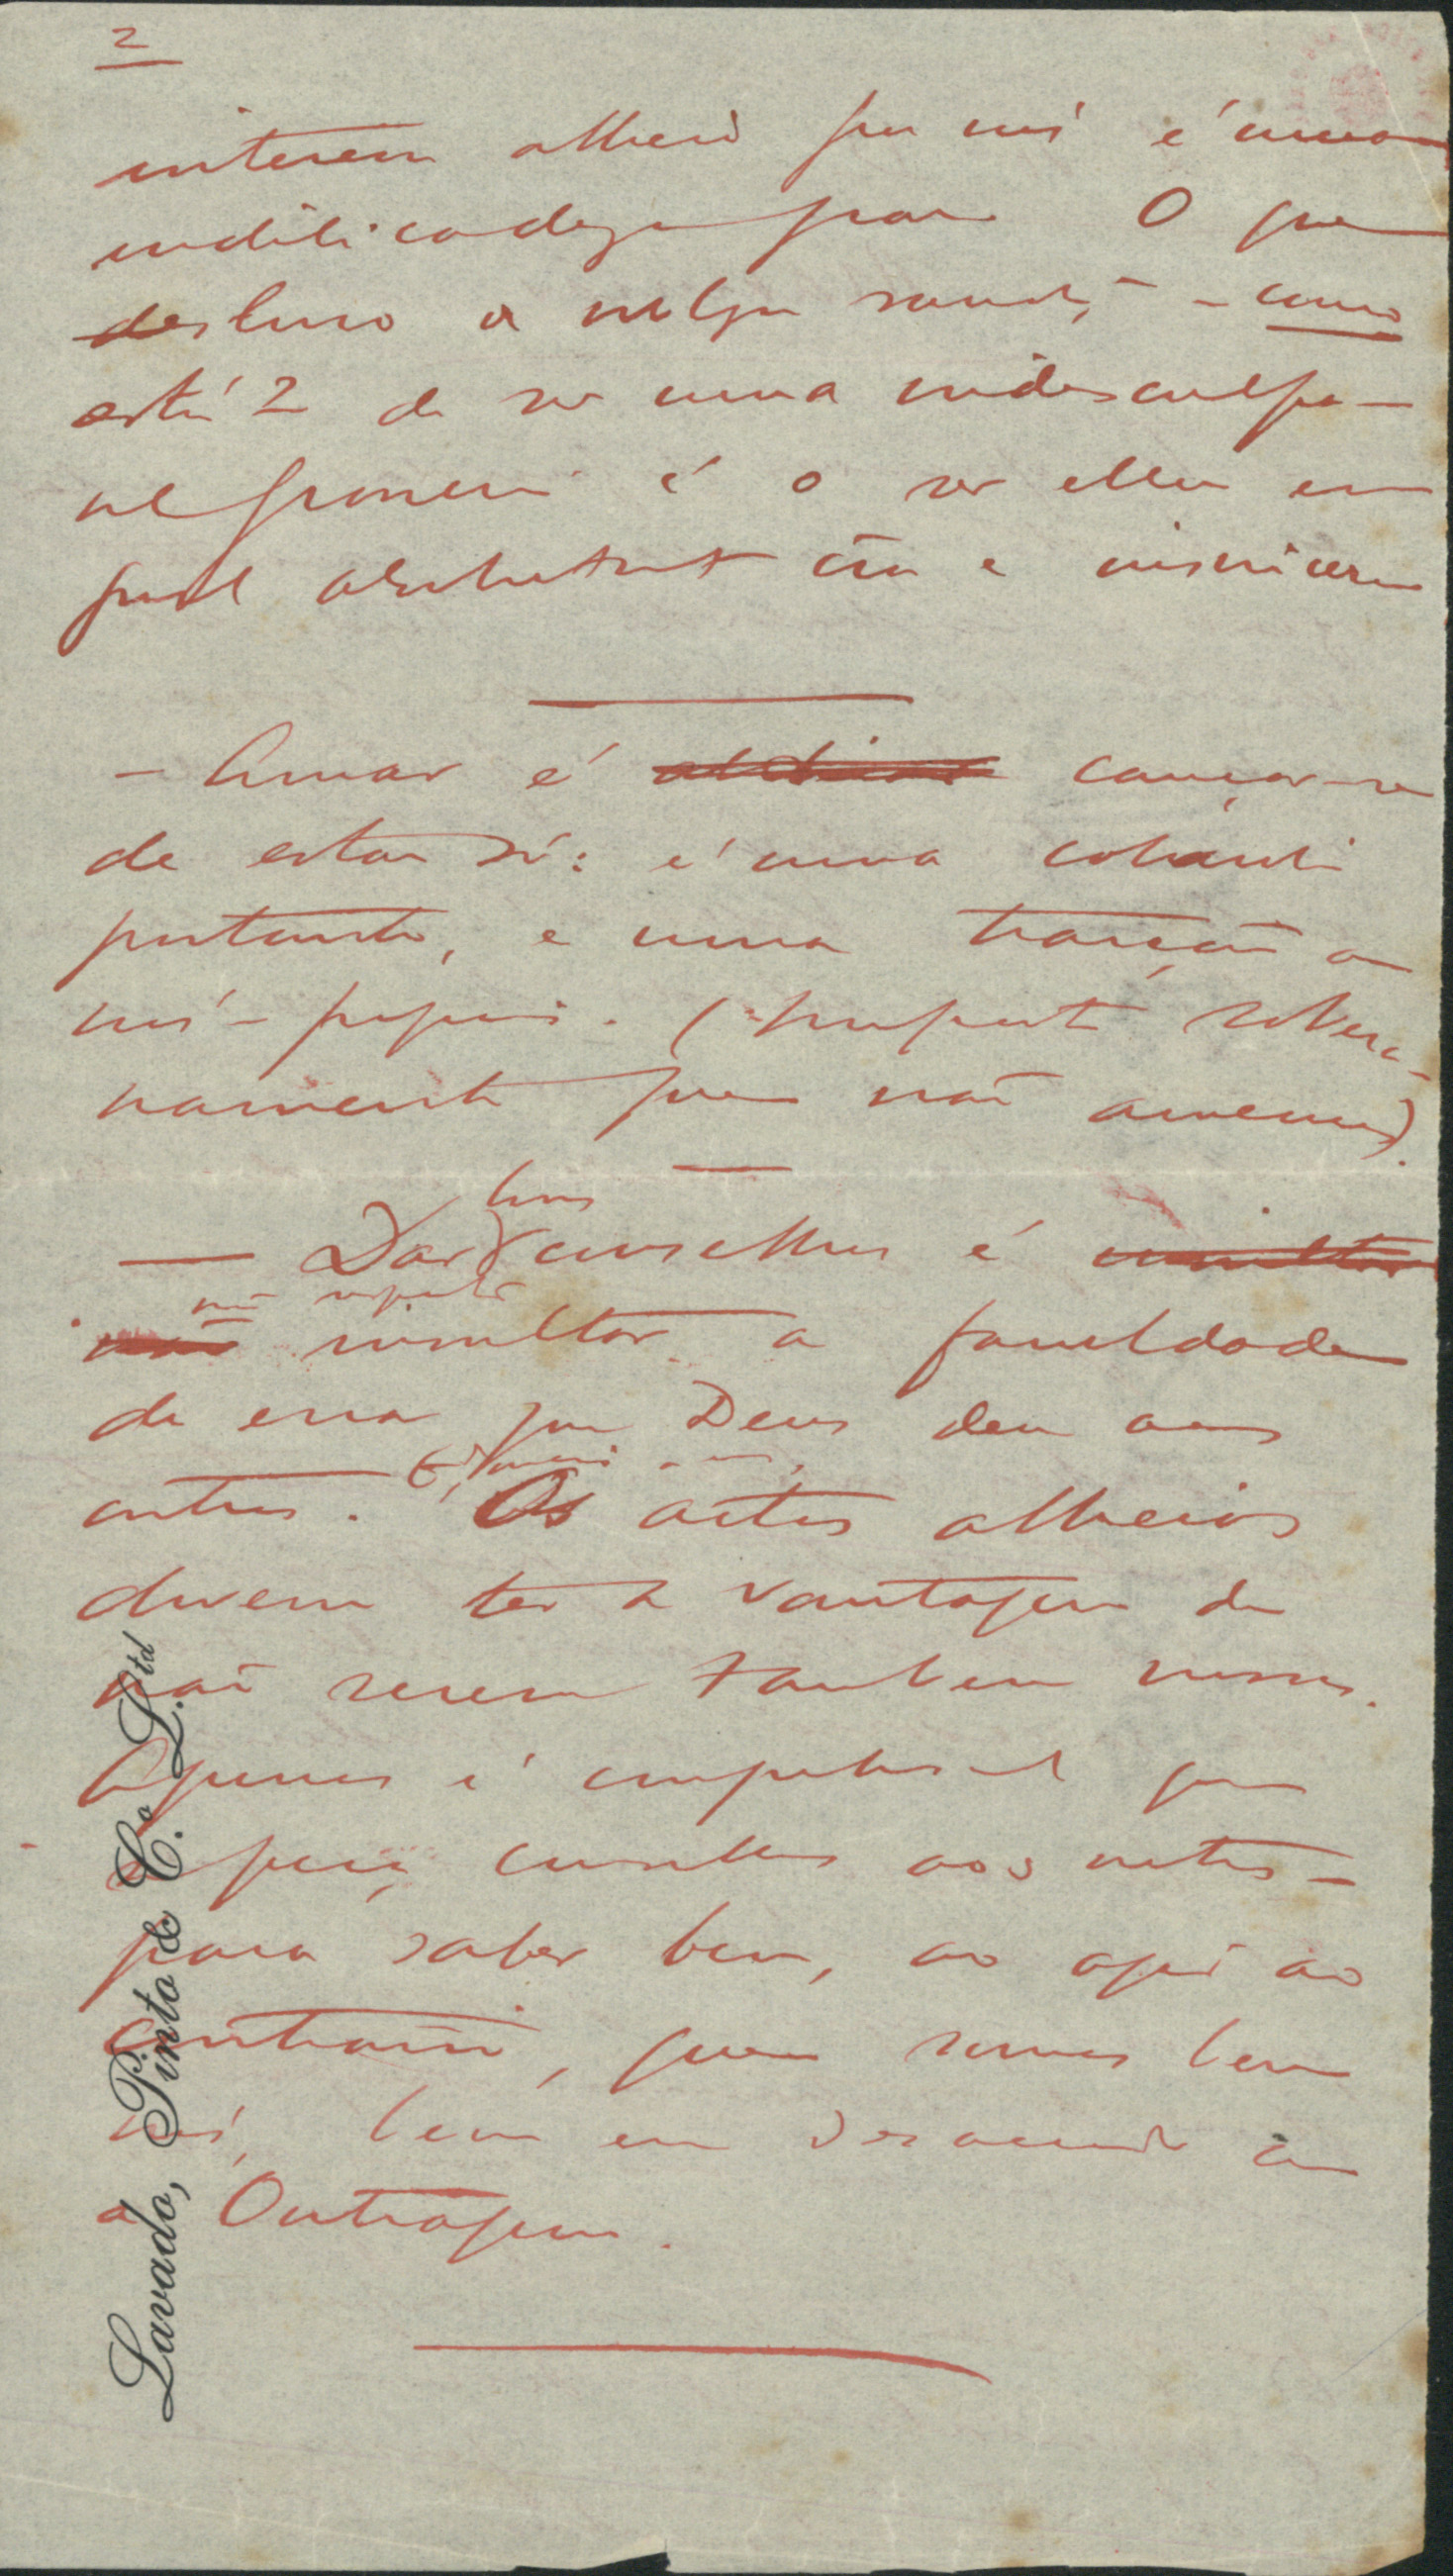 2
interesse alheio por nós é uma
indelicadeza grave. O que
desloca a vulgar saudação – como
está? de ser uma indesculpa-
vel grosseria é o ser ella em
geral absolutamente ôca e insincera
– Amar é cançar-se
de estar só: é uma cobardia
portanto, e uma traição a
nós-proprios. (Importa sobera-
namente que não amemos).
bons
— Dar conselhos é insultar
não respeitar
não insultar a faculdade
de errar que Deus deu aos
outros. E, mais,
Os actos alheios
devem ter a vantagem de
não serem tambem nossos.
Apenas é comprehensivel que
se peça conselhos aos outros –
para saber bem, ao agir ao
contrario, que somos bem
nós, bem em desaccordo com
a Outragem.
Lavado, Pinto & C.ª L.td